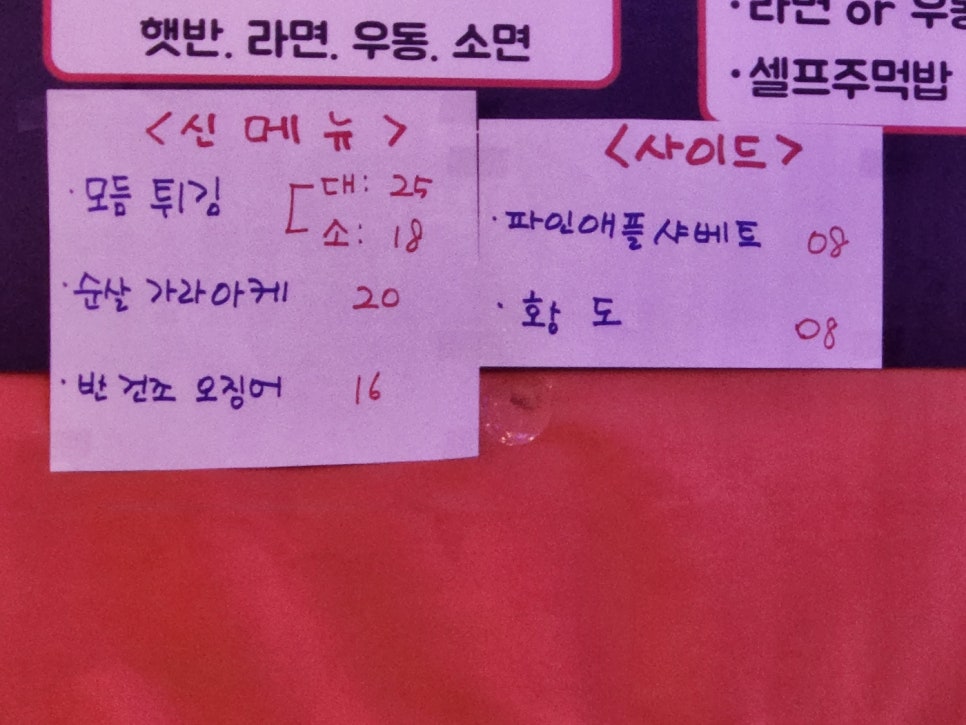 햇반. 라면. 우동. 소면
·라면 or 우동
·셀프주먹밥
<신 메 뉴>
·모듬 튀김 대: 25
소: 18
·순살 가라아케 20
·반건조 오징어 16
<사이드>
·파인애플 샤베트 08
·황 도 08